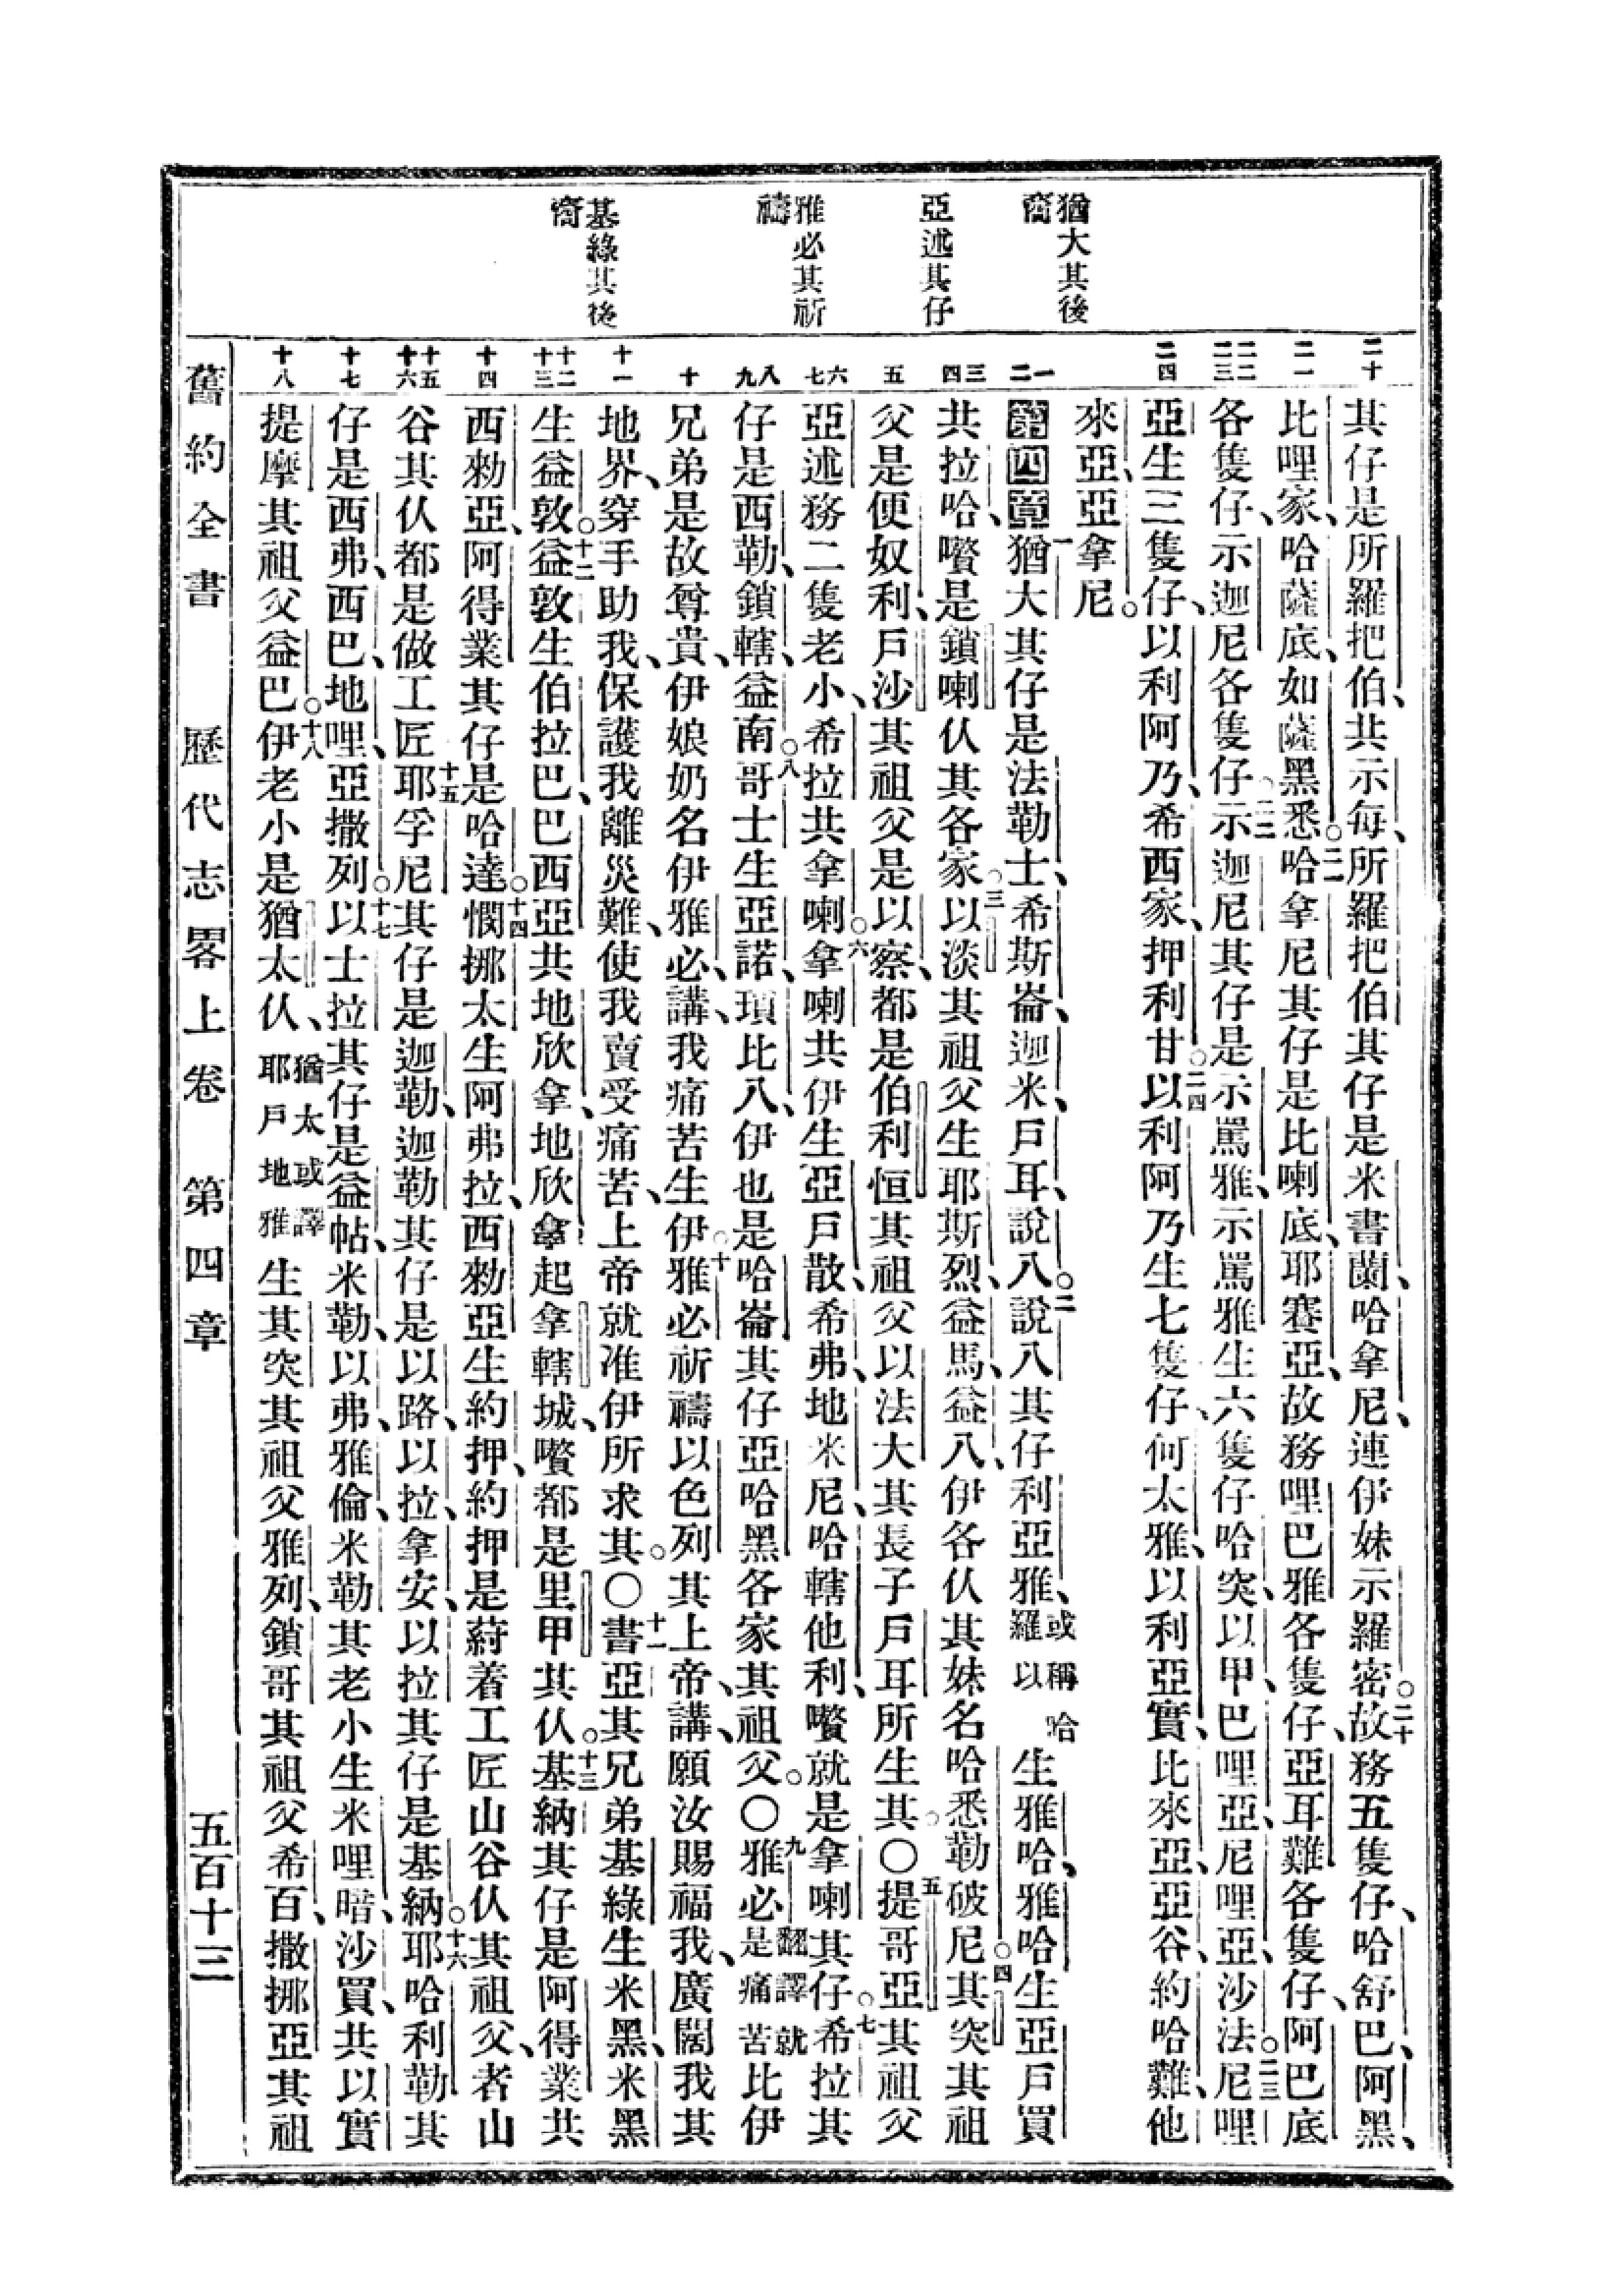 猶大其後
裔
亞述其仔
雅必其祈
禱
基綠其後
裔
二十
二一
二二
二三
二四
一
二
三
四
五
六
七
八
九
十
十一
十二
十三
十四
十五
十六
十七
十八
其仔是所羅把伯、共示每、所羅把伯其仔是米書蘭、哈拿尼、連伊妹示羅密。二十故務五隻仔、哈舒巴、阿黑、
比哩家、哈薩底、如薩黑悉。二一哈拿尼其仔是比喇底、耶賽亞、故務哩巴雅各隻仔、亞耳難各隻仔、阿巴底
各隻仔、示迦尼各隻仔。二二示迦尼其仔是示罵雅、示罵雅生六隻仔、哈突、以甲、巴哩亞、尼哩亞、沙法。二三尼哩
亞生三隻仔、以利阿乃、希西家、押利甘。二四以利阿乃生七隻仔、何太雅、以利亞實、比來亞、亞谷、約哈難、他
來亞、亞拿尼。
第四章一猶大其仔是法勒士、希斯崙、迦米、戶耳、說八。二說八其仔利亞雅、或稱哈羅以生雅哈、雅哈生亞戶買
共拉哈、嚽是鎖喇仈其各家。三以淡其祖父生耶斯烈、益馬、益八、伊各仈其妹名哈悉勒破尼。四其突其祖
父是便奴利、戶沙其祖父是以察、都是伯利恒其祖父以法大其長子戶耳所生其。〇五提哥亞其祖父
亞述務二隻老小、希拉共拿喇。六拿喇共伊生亞戶散、希弗、地米尼、哈轄他利、嚽就是拿喇其仔。七希拉其
仔是西勒、鎖轄、益南。八哥士生亞諾、瑣比八、伊也是哈崙其仔亞哈黑各家其祖父。〇九雅必翻譯就是痛苦比伊
兄弟是故尊貴、伊娘奶名伊雅必、講、我痛苦生伊。十雅必祈禱以色列其上帝、講、願汝賜福我、廣闊我其
地界、穿手助我、保護我離災難、使我賣受痛苦、上帝就准伊所求其。〇十一書亞其兄弟基綠生米黑、米黑
生益敦。十二益敦生伯拉巴、巴西亞共地欣拿、地欣拿起拿轄城、嚽都是里甲其仈。十三基納其仔是阿得業共
西勑亞、阿得業其仔是哈達。十四憫挪太生阿弗拉、西勑亞生約押、約押是蒔着工匠山谷仈其祖父、者山
谷其仈都是做工匠。十五耶孚尼其仔是迦勒、迦勒其仔是以路、以拉、拿安、以拉其仔是基納。十六耶哈利勒其
仔是西弗、西巴、地哩、亞撒列。十七以士拉其仔是益帖、米勒、以弗、雅倫、米勒其老小生米哩暗、沙買、共以實
提摩其祖父益巴。十八伊老小是猶太仈、猶太或譯耶戶地雅生其突其祖父雅列、鎖哥其祖父希百、撒挪亞其祖
舊約全書　歷代志畧上卷　第四章　五百十三